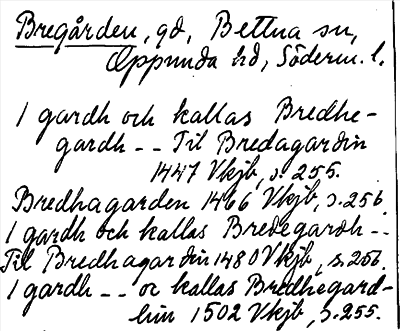 Bregården, gd, Bettna sn,
Oppunda hd, Söderm. l.
1 gardh och kallas Bredhe-
gardh -- Til Bredagardin
1447 Vkjb, s. 255.
Bredhagarden 1466 Vkjb, s. 256.
1 gardh och kallas Bredegardh --
Til Bredhagardin 1480 Vkjb, s. 256.
1 gardh -- oc kallas Bredhegard-
hin 1502 Vkjb, s. 255.